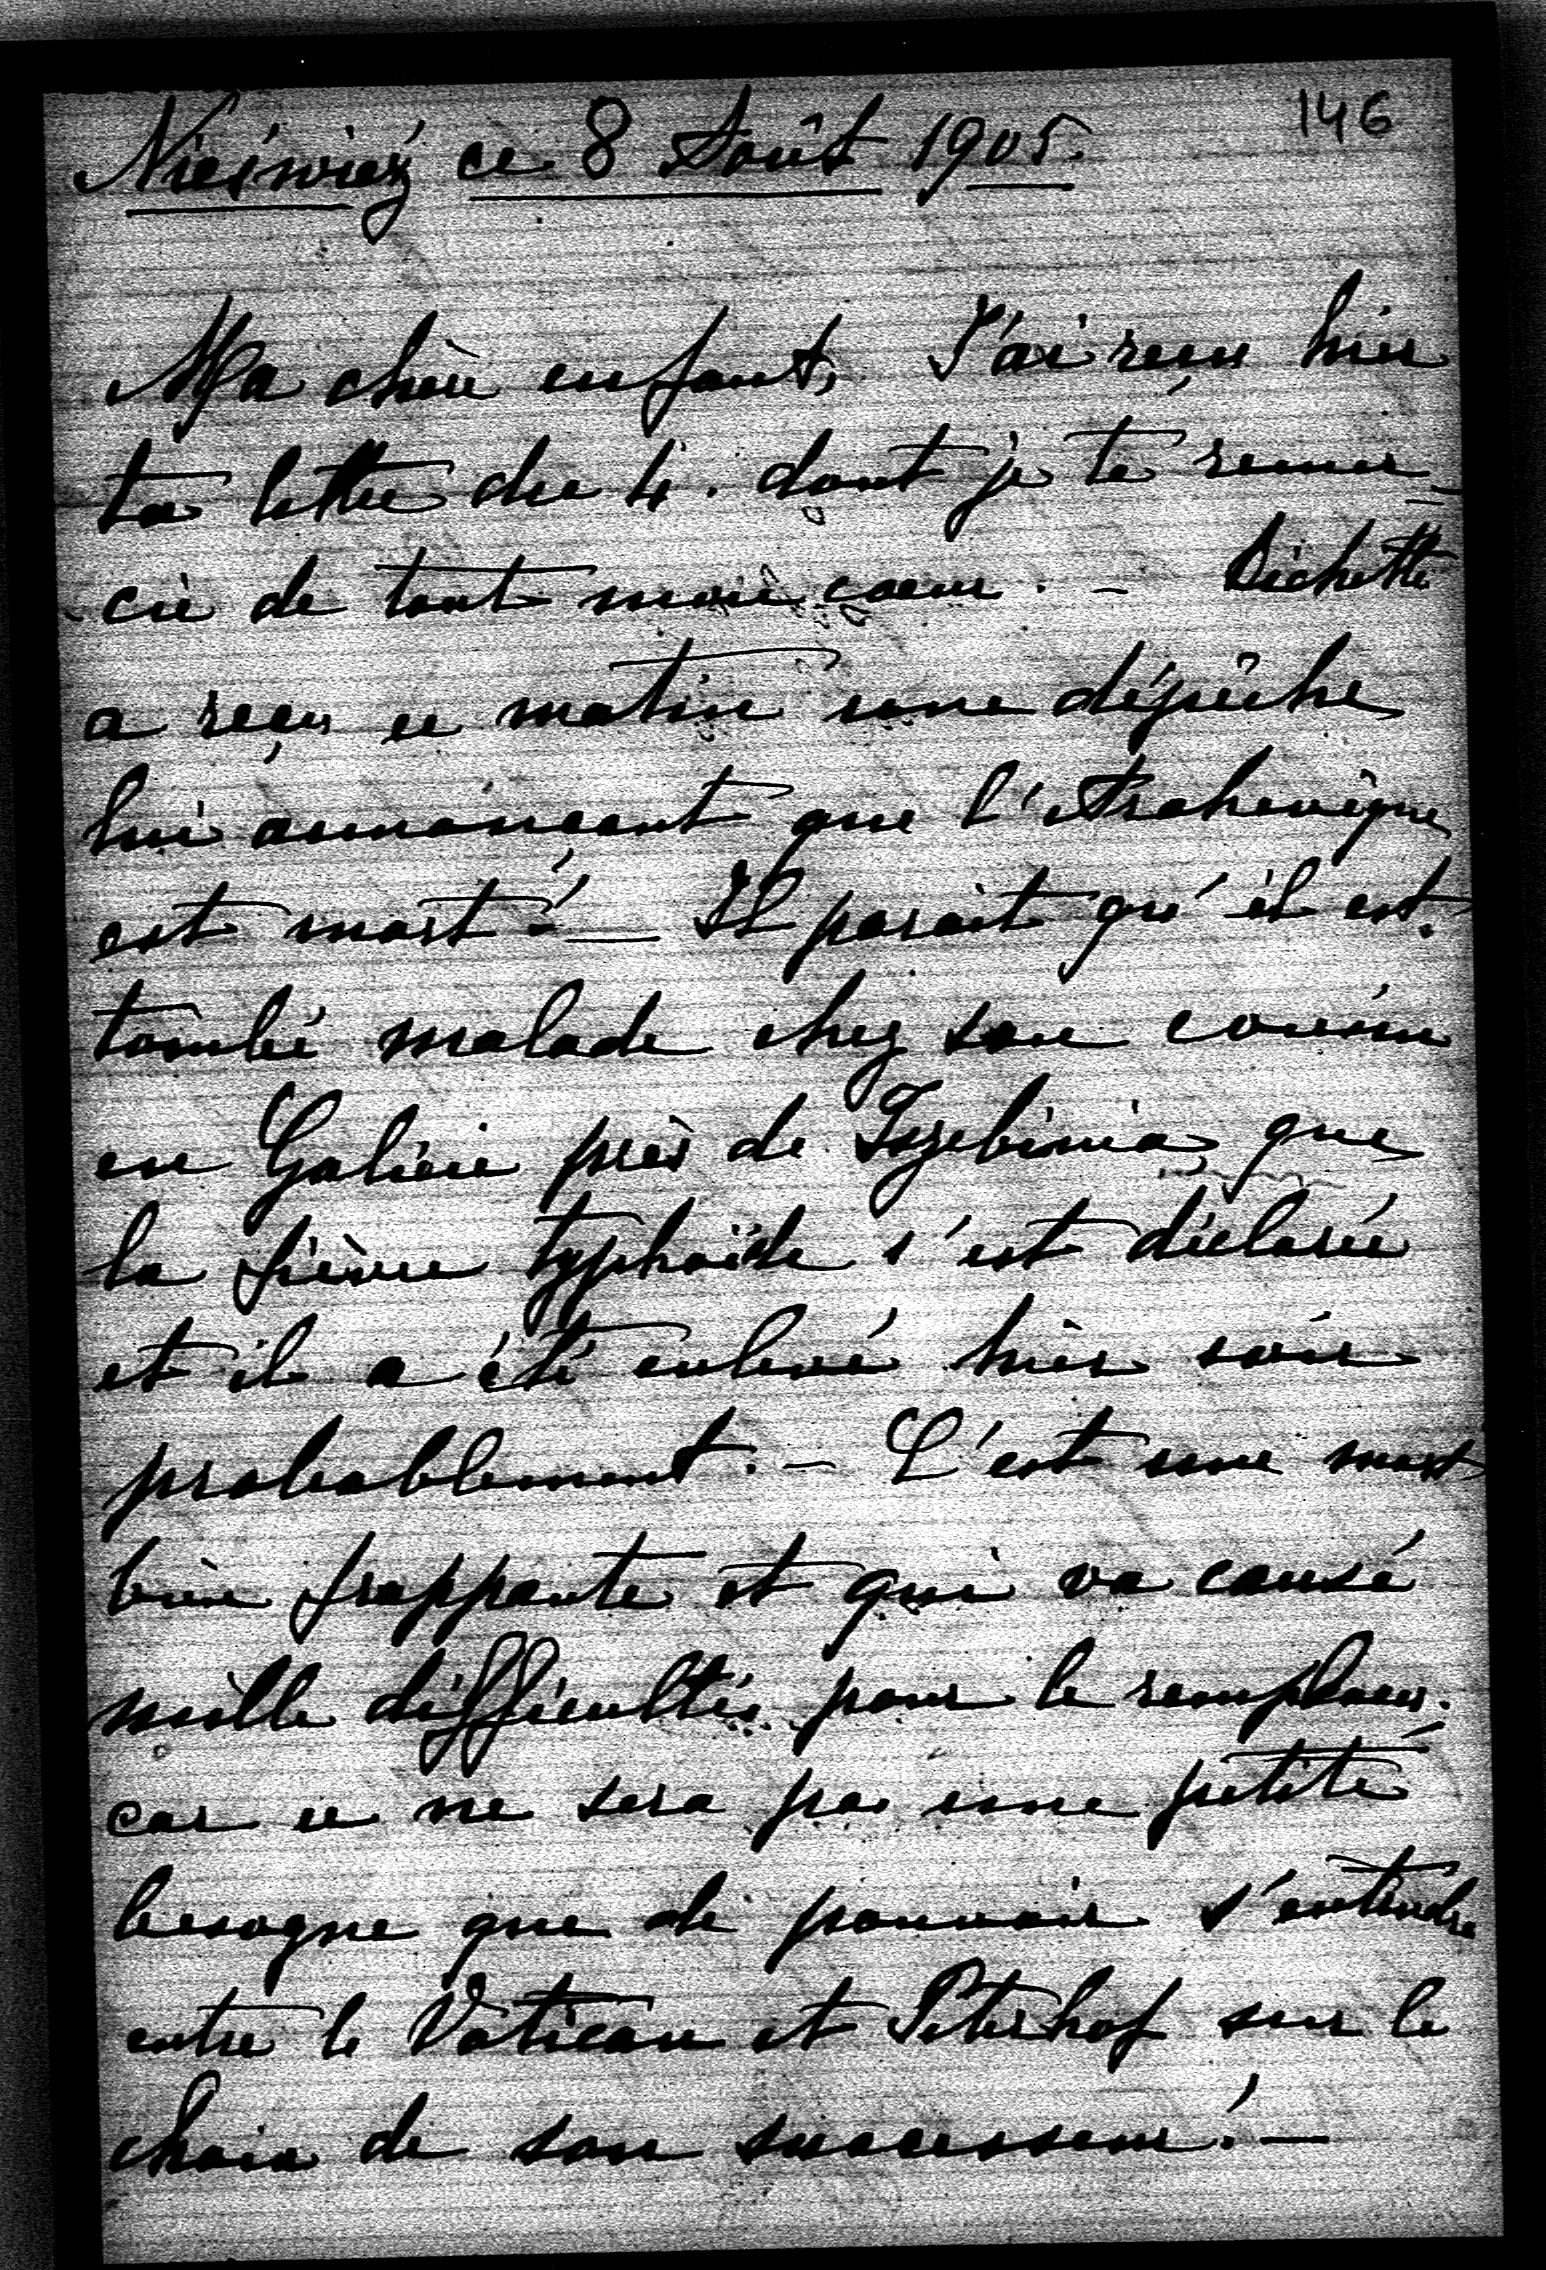 146
Nieśwież ce 8 Août 1905.
Ma chère enfant, J'ai reçu hier
ta lettre du 4. dont je te remer-
cie de tout mon coeur. – Bichette
a reçu ce matin une dépêche
lui annonçant que l'Archevêque
est mort! — Il parait qu'il est
tombé malade chez son cousin
en Galicie près de Trzebinia, que
la fièvre typhoïde s'est déclarée
et il a été enlevé hier soir
probablement. – C'est une mort
bien frappante et qui va causé
mille difficultés pour le remplacer.
car ce ne sera pas une petite
besogne que de pouvoir s'entendre
entre le Vatican et Peterhof sur le
choix de son successeur! —